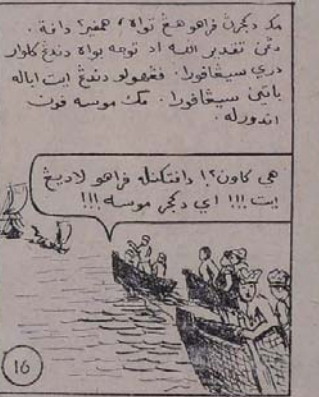 مک دکجرڽ فراهو هڠ تواه، همفير٢ دافة.
دڠن تقدير الله اد توجه بواه دندڠ کلوار
دري سيڠافورا. فڠهولو دندڠ ايت اباله
باتين سيڠافورا. مک موسه فون
اندورله.
هي کاون٢! دافتکنله فراهو لاديڠ
ايت!!! اي دکجر موسه!!!
16